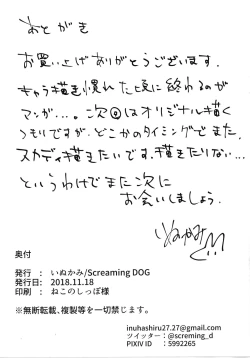 あとがき
お買い上げありがとうございます。
キャラ描き慣れた頃に終わるのが
マンガ…。次回はオリジナル描く
つもりですが、どこかのタイミングでまた、
スカディ描きたいです。描きたりない…
というわけでまた次に
お会いしましょう。
いぬかみ
奥付
発行 : いぬかみ/Screaming DOG
発行日: 2018.11.18
印刷 : ねこのしっぽ様
※無断転載、複製等を一切禁じます。
inuhashiru27.27@gmail.com
ツイッター:@screming_d
PIXIV ID :5992265